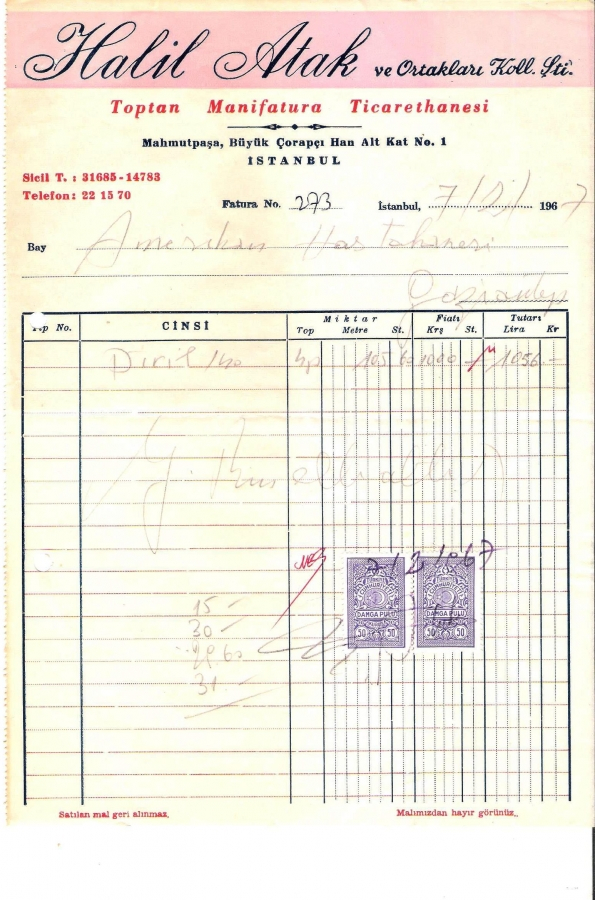 Halil Atak ve Ortakları Koll. Şti.
Toptan Manifatura Ticarethanesi
Mahmutpaşa, Büyük Çorapçı Han Alt Kat No. 1
İSTANBUL
Sicil T. : 31685-14783
Telefon: 22 15 70
Fatura No. 273 İstanbul, 7/2/1967
Bay Amerikan Hastahanesi
Gaziantep
Top No. CİNSİ Miktar Fiatı Tutarı
Top Metre St. Krş St. Lira Kr
105 60 1000 - 1056.-
7/2/1967
DAMGA PULU DAMGA PULU
50 50 50 50
15 -
30 -
31 -
Satılan mal geri alınmaz,
Malımızdan hayır görünüz,,